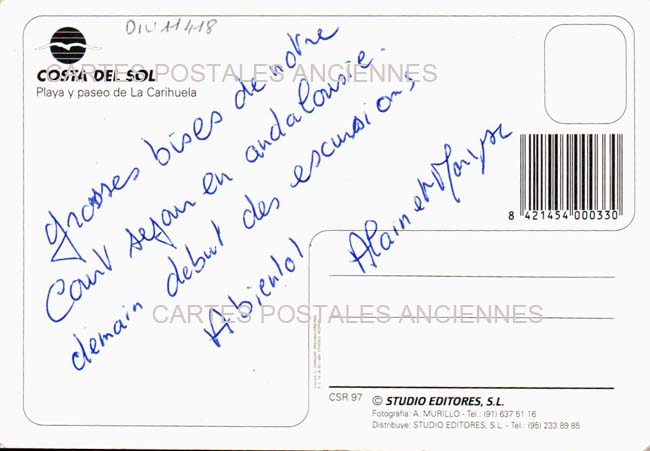 DIV 11418
COSTA DEL SOL
Playa y paseo de La Carihuela
CARTES POSTALES ANCIENNES
grosses bises de notre
Court sejour en andalousie.
demain debut des escursions
A bientot
Alain et
8 421454 000330
CARTES POSTALES ANCIENNES
CSR 97
© STUDIO EDITORES, S.L.
Fotografía: A. MURILLO - Tel.: (91) 637 51 16
Distribuye: STUDIO EDITORES, S.L. - Tel.: (95) 233 89 85